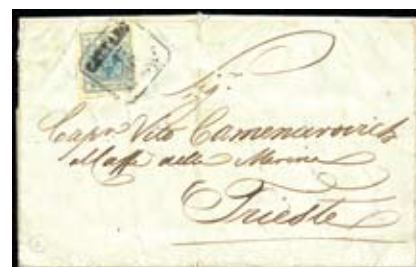 Sigr
Capn Vito Camenurovich
al Caffe della Marina
Trieste